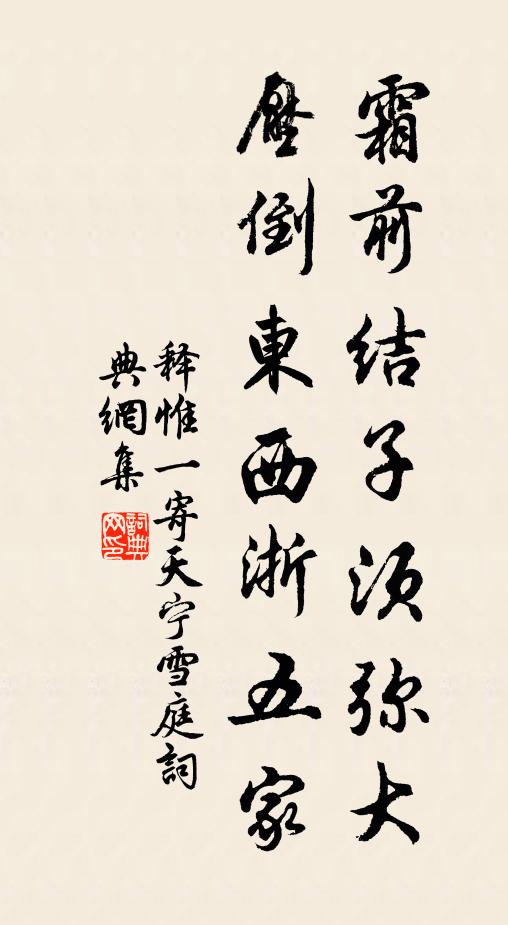 霜前结子须弥大
壓倒東西浙五家
释惟一寄天宁雪庭詞
典網集
詞典网印